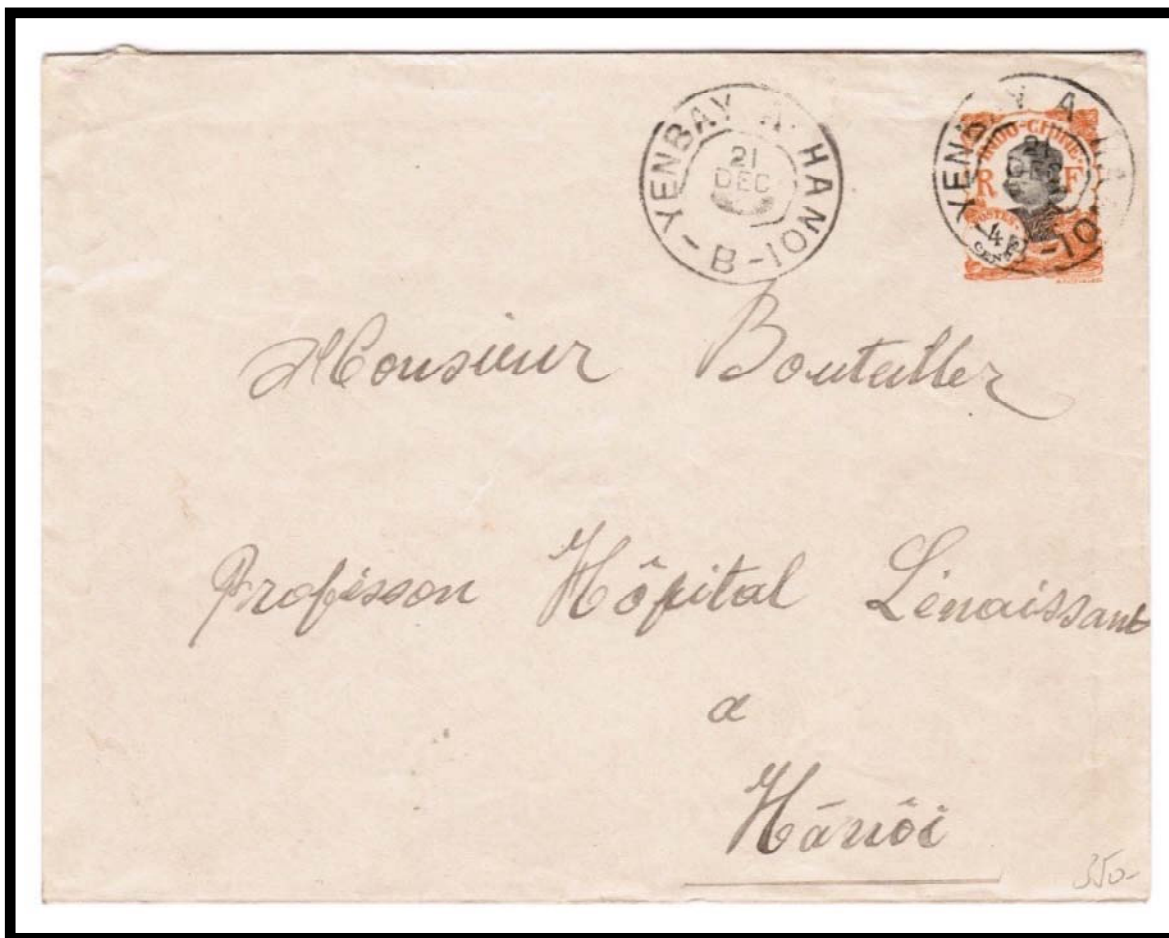 YENBAY A HANOI
21
DEC
B-10
YENBAY A
21
DEC
-10
INDO-CHINE
R F
POSTES
4
CENTS
Monsieur Bouteiller
Professon Hôpital Lénaissant
a
Hánôi
350-